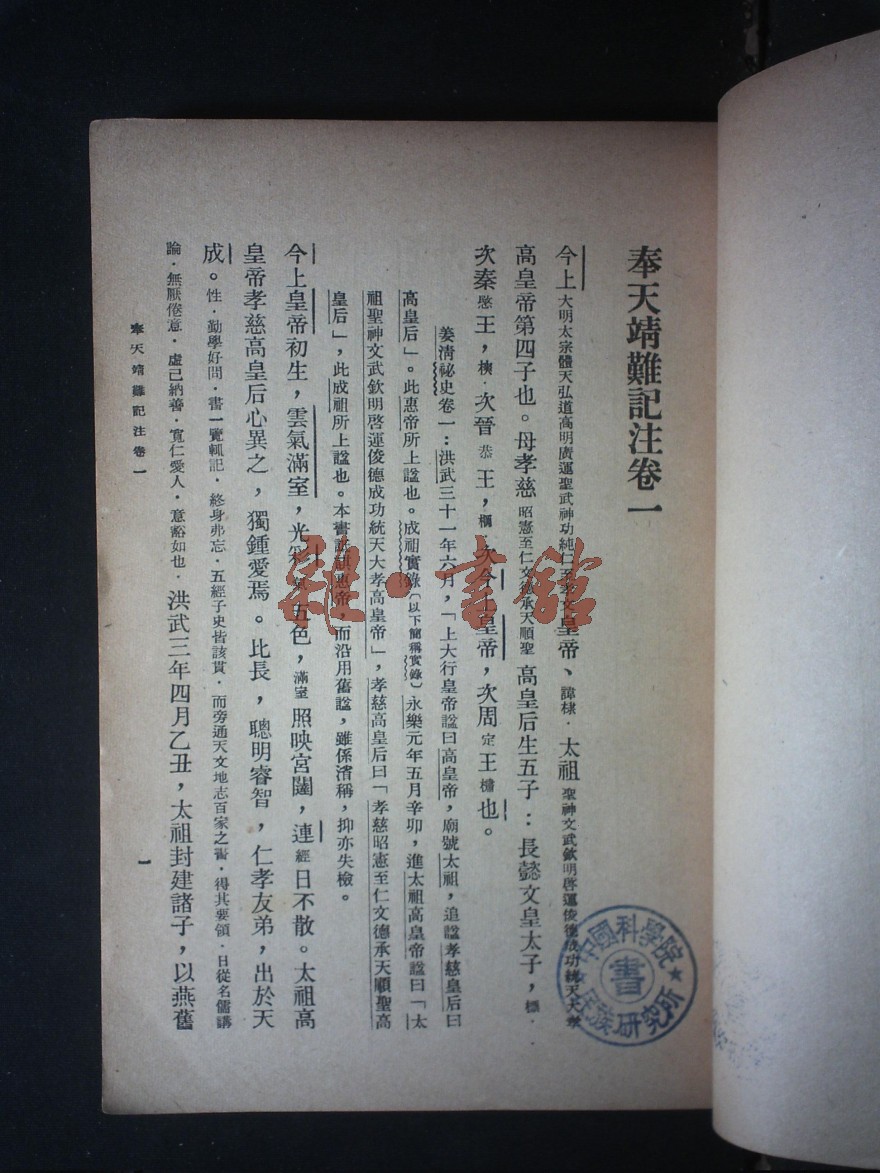 奉天靖難記注卷一
今上大明太宗體天弘道高明廣運聖武神功純仁至孝文皇帝、諱棣．太祖聖神文武欽明啓運俊德成功統天大孝
高皇帝第四子也。母孝慈昭憲至仁文德承天順聖高皇后生五子：長懿文皇太子，標．
次秦愍王，樉．次晉恭王，棡．次今上皇帝，次周定王橚也。
姜淸祕史卷一：洪武三十一年六月，「上大行皇帝諡曰高皇帝，廟號太祖，追諡孝慈皇后曰
高皇后」。此惠帝所上諡也。成祖實錄〔以下簡稱實錄〕永樂元年五月辛卯，進太祖高皇帝諡曰「太
祖聖神文武欽明啓運俊德成功統天大孝高皇帝」，孝慈高皇后曰「孝慈昭憲至仁文德承天順聖高
皇后」，此成祖所上諡也。本書詆惠帝，而沿用舊諡，雖係濳稱，抑亦失檢。
今上皇帝初生，雲氣滿室，光彩五色，滿室照映宮闥，連經日不散。太祖高
皇帝孝慈高皇后心異之，獨鍾愛焉。比長，聰明睿智，仁孝友弟，出於天
成。性．勤學好問．書一覽輒記．終身弗忘．五經子史皆該貫．而旁通天文地志百家之書．得其要領．日從名儒講
論．無厭倦意．虛己納善．寬仁愛人．意豁如也．洪武三年四月乙丑，太祖封建諸子，以燕舊
奉天靖難記注卷一
一
雜·書館
中國科學院民族研究所
書